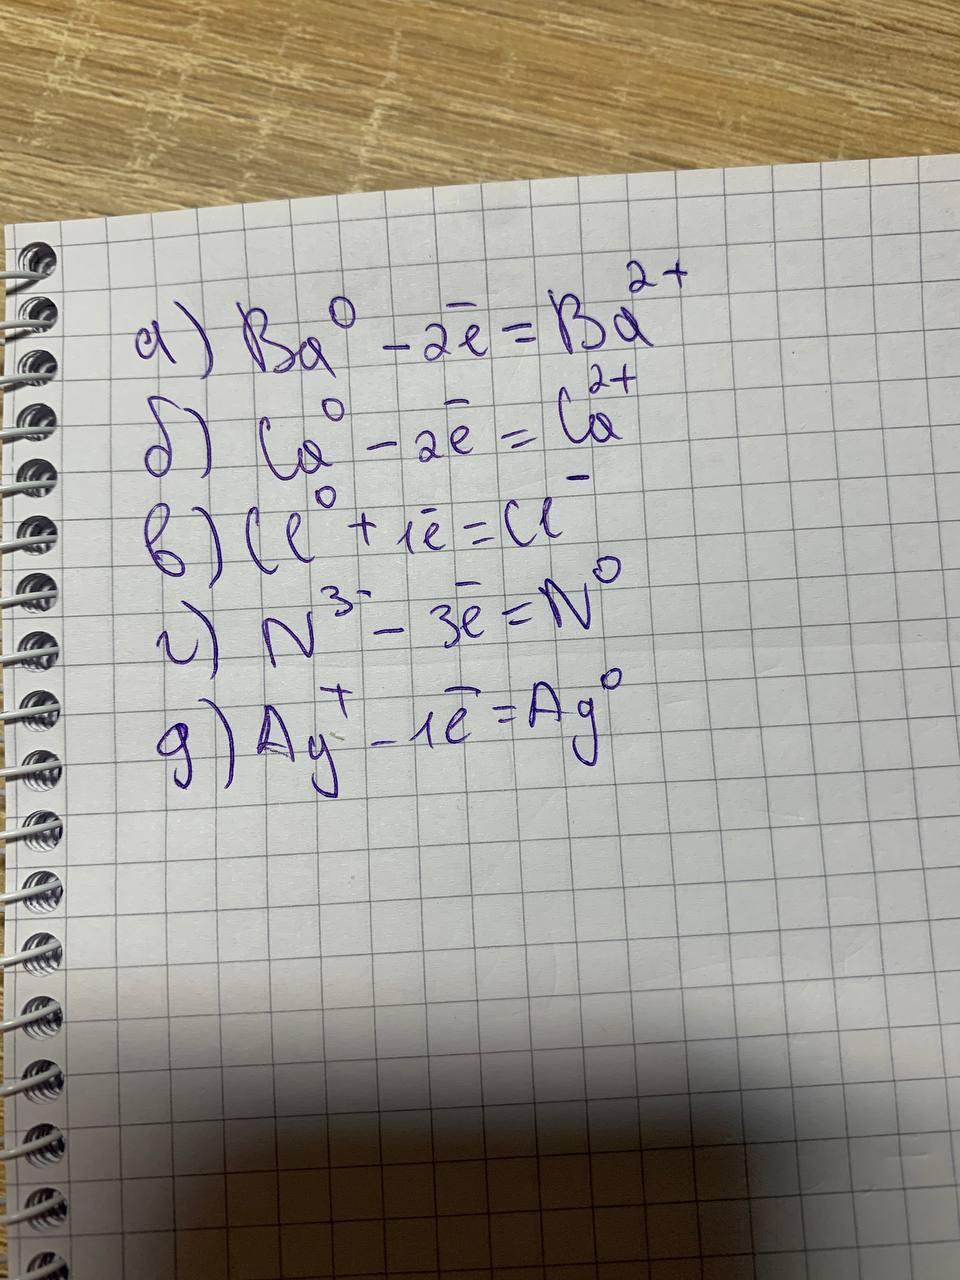 а) Ba⁰ - 2ē = Ba²⁺
б) Ca⁰ - 2ē = Ca²⁺
в) Cl⁰ + 1ē = Cl⁻
г) N³⁻ - 3ē = N⁰
д) Ag⁺ - 1ē = Ag⁰